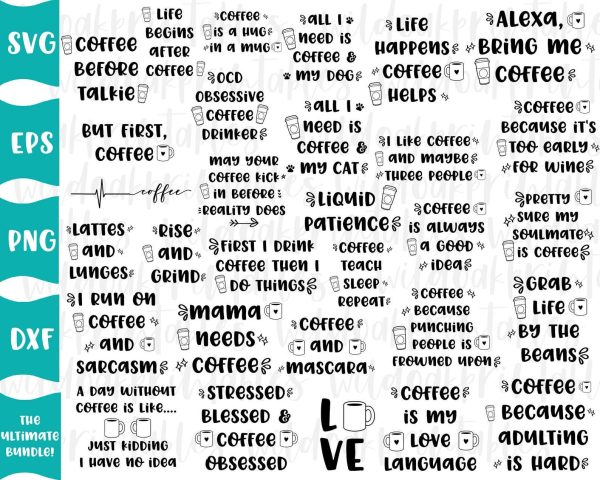 SVG
EPS
PNG
DXF
THE
ULTIMATE
BUNDLE!
COFFEE
BEFORE
TALKIE
LIFE
BEGINS
AFTER
COFFEE
COFFEE
IS A HUG
IN A MUG
ALL I
NEED IS
COFFEE &
MY DOG
LIFE
HAPPENS
COFFEE
HELPS
ALEXA,
BRING ME
COFFEE
BUT FIRST,
COFFEE
OCD
OBSESSIVE
COFFEE
DRINKER
ALL I
NEED IS
COFFEE &
MY CAT
I LIKE COFFEE
AND MAYBE
THREE PEOPLE
COFFEE
BECAUSE IT'S
TOO EARLY
FOR WINE
coffee
MAY YOUR
COFFEE KICK
IN BEFORE
REALITY DOES
LIQUID
PATIENCE
COFFEE
IS ALWAYS
A GOOD
IDEA
PRETTY
SURE MY
SOULMATE
IS COFFEE
LATTES
AND
LUNGES
RISE
AND
GRIND
FIRST I DRINK
COFFEE THEN I
DO THINGS
COFFEE
TEACH
SLEEP
REPEAT
COFFEE
BECAUSE
PUNCHING
PEOPLE IS
FROWNED UPON
GRAB
LIFE
BY THE
BEANS
I RUN ON
COFFEE
AND
SARCASM
MAMA
NEEDS
COFFEE
COFFEE
AND
MASCARA
A DAY WITHOUT
COFFEE IS LIKE....
JUST KIDDING
I HAVE NO IDEA
STRESSED
BLESSED &
COFFEE
OBSESSED
L
VE
COFFEE
IS MY
LOVE
LANGUAGE
COFFEE
BECAUSE
ADULTING
IS HARD
wildoakprintables